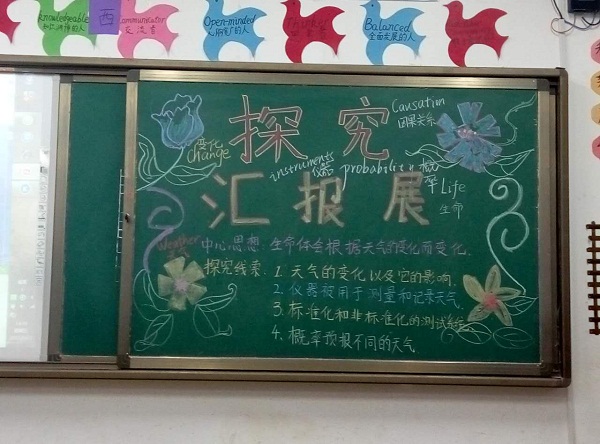 Knowledgeable
知识渊博的人
西
Communicator
交流者
Open-minded
心胸宽广的人
Thinker
Balanced
全面发展的人
Caring
变化
change
探究
Causation
因果关系
instruments
仪器
probability
概率
汇报展
Life
生命
Weather
中心思想 生命体会根据天气的变化而变化.
探究线索:
1. 天气的变化以及它的影响.
2. 仪器被用于测量和记录天气
3. 标准化和非标准化的测试系统
4. 概率预报不同的天气